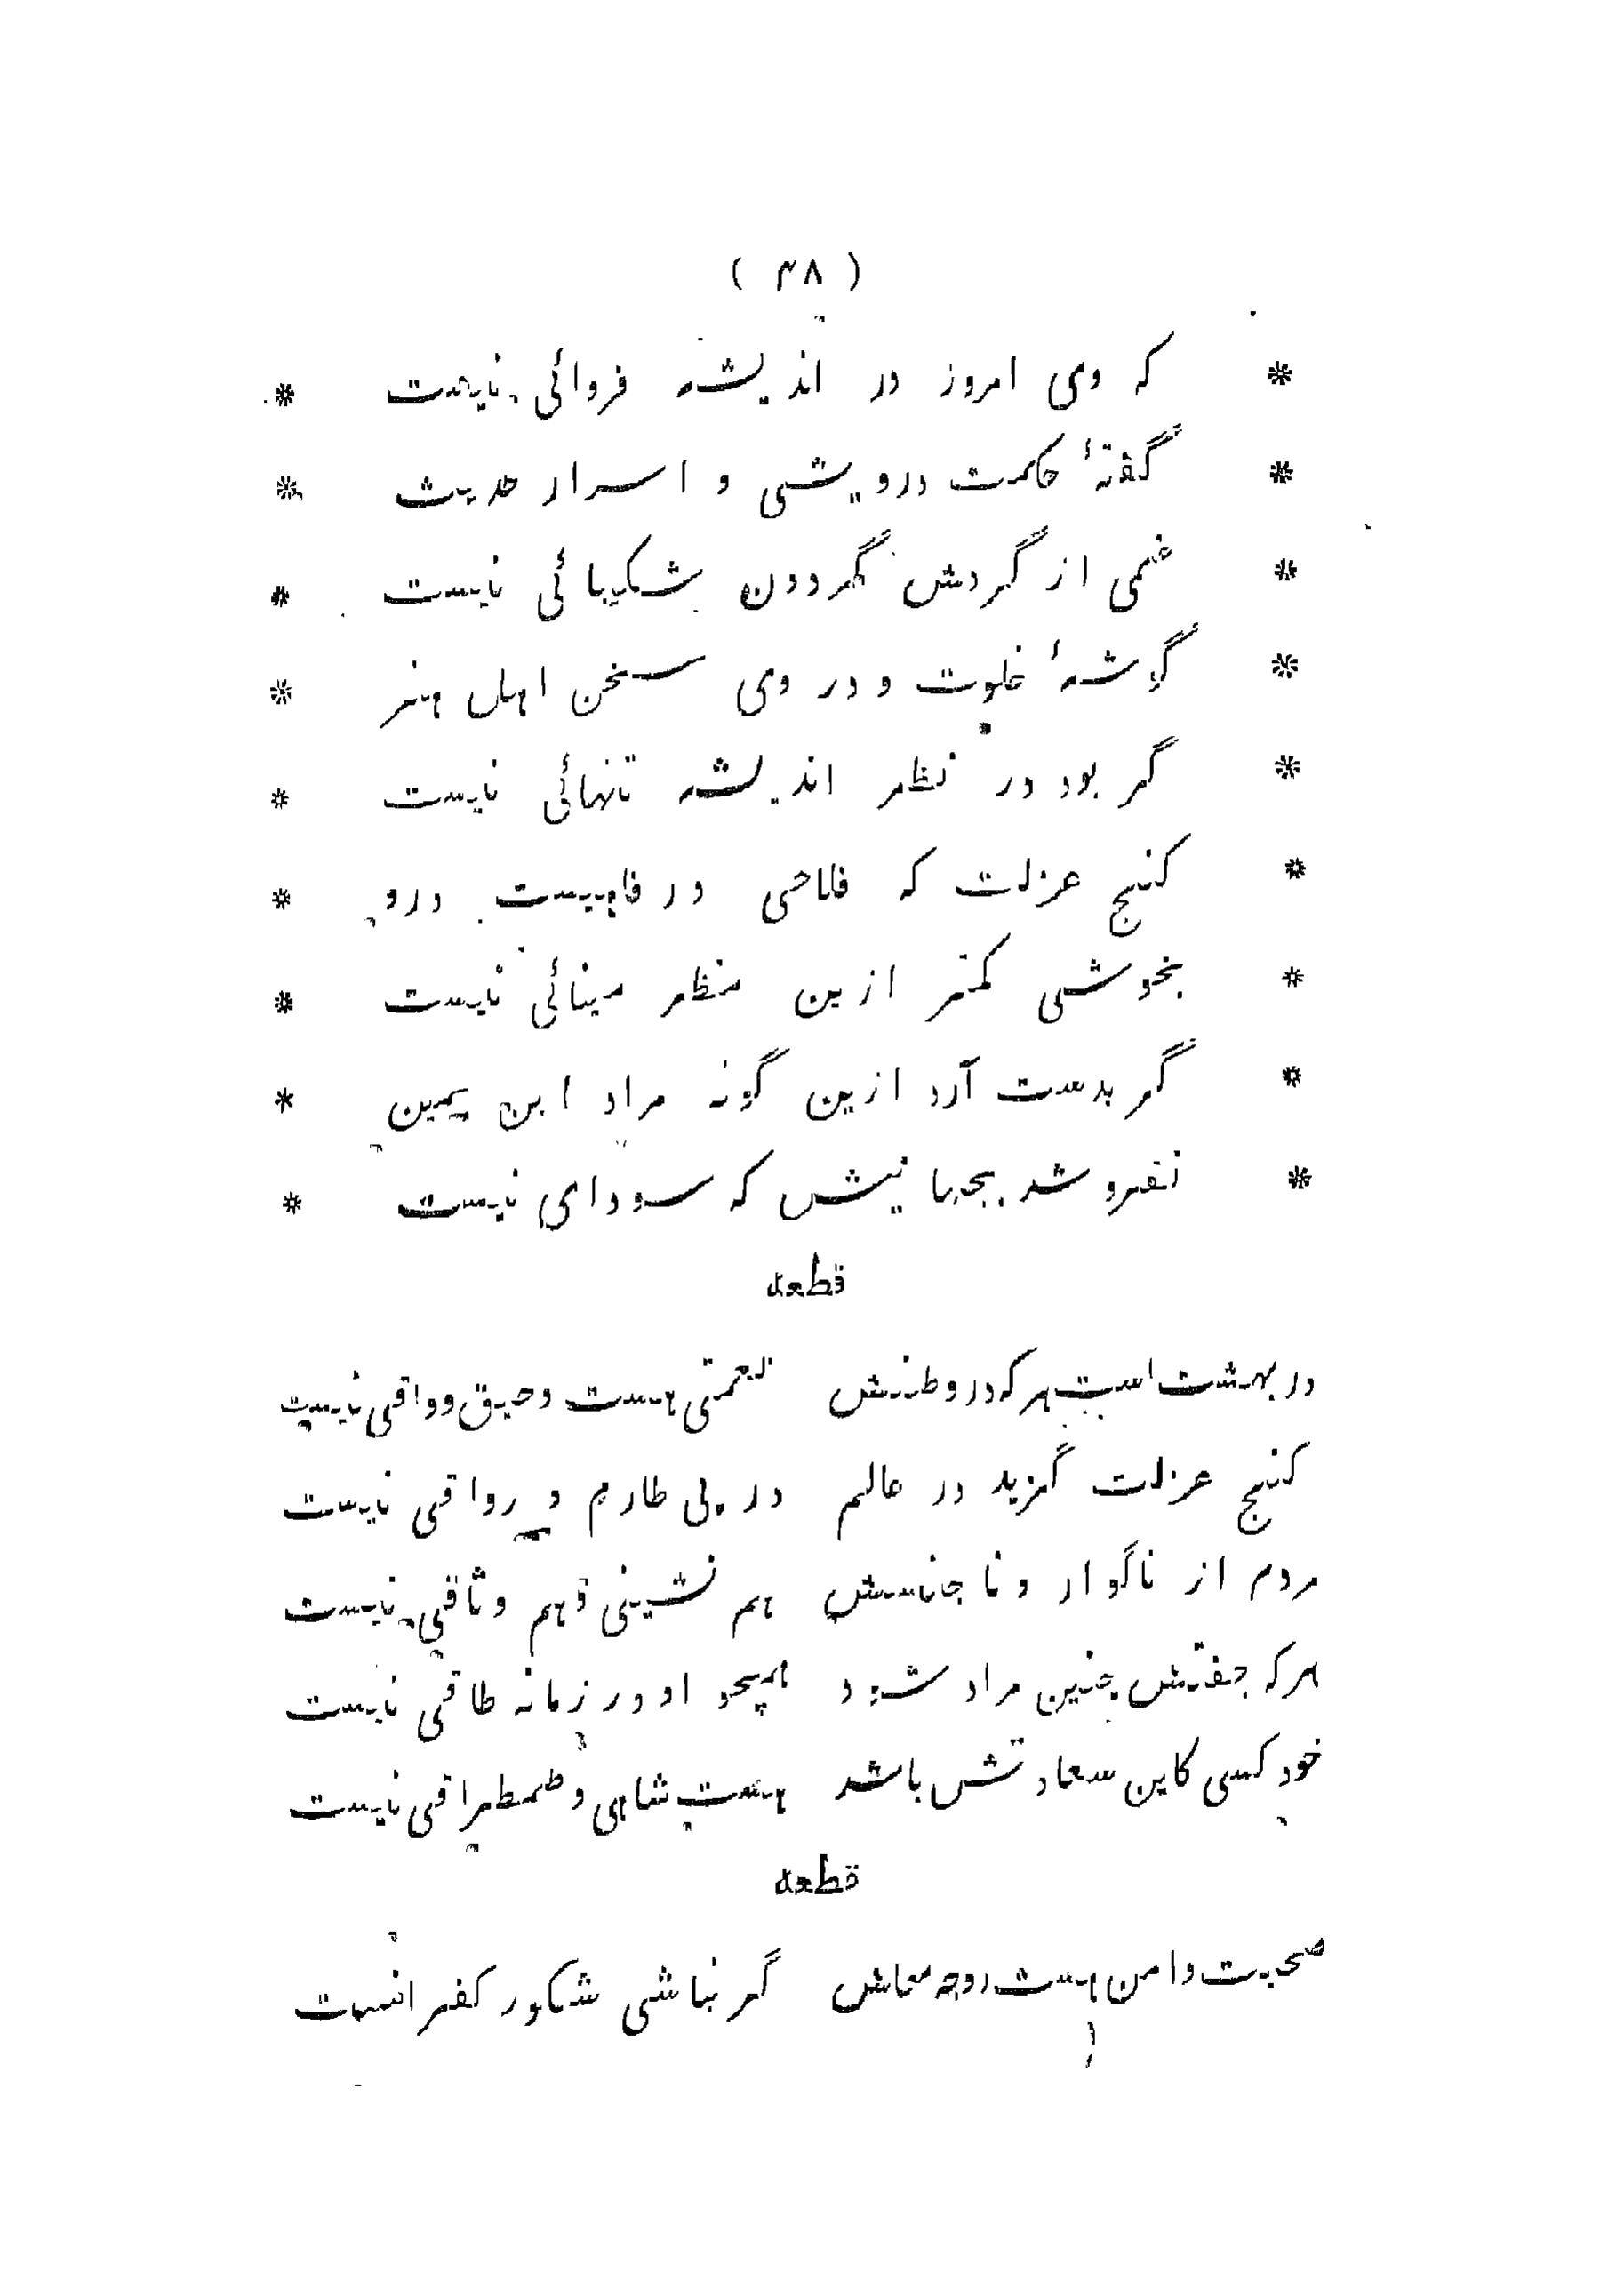 ( ۴۸ )
* که وی امروز در اندیشه فردائی نیست *
* گفتهٔ حکمت درویشی و اسرار حدیث *
* غمی از گردش گردون شکیبائی نیست *
* گوشهٔ خلوت و در وی سخن اهل هنر *
* گر بود در نظر اندیشه تنهائی نیست *
* کنج عزلت که فلاحی در فاهیست درو *
* بخوشی کمتر ازین منظر مینائی نیست *
* گر بدست آرد ازین گونه مراد ابن یمین *
* نفروشد بجهانیش که سودای نیست *
قطعه
در بهشت است هر که در وطنش نعمتی هست وحیق وواقی نیست
کنج عزلت گزید در عالم در پی طارم و رواقی نیست
مردم از ناگوار و نا جانسش هم نشینی وهم وثاقی نیست
هر که جفتش چنین مراد شود همچو او در زمانه طاقی نیست
خود کسی کاین سعادتش باشد هست شاهی و طمطراقی نیست
قطعه
صحبت وامن هست ووجه معاش گر نباشی شکور کفر انست